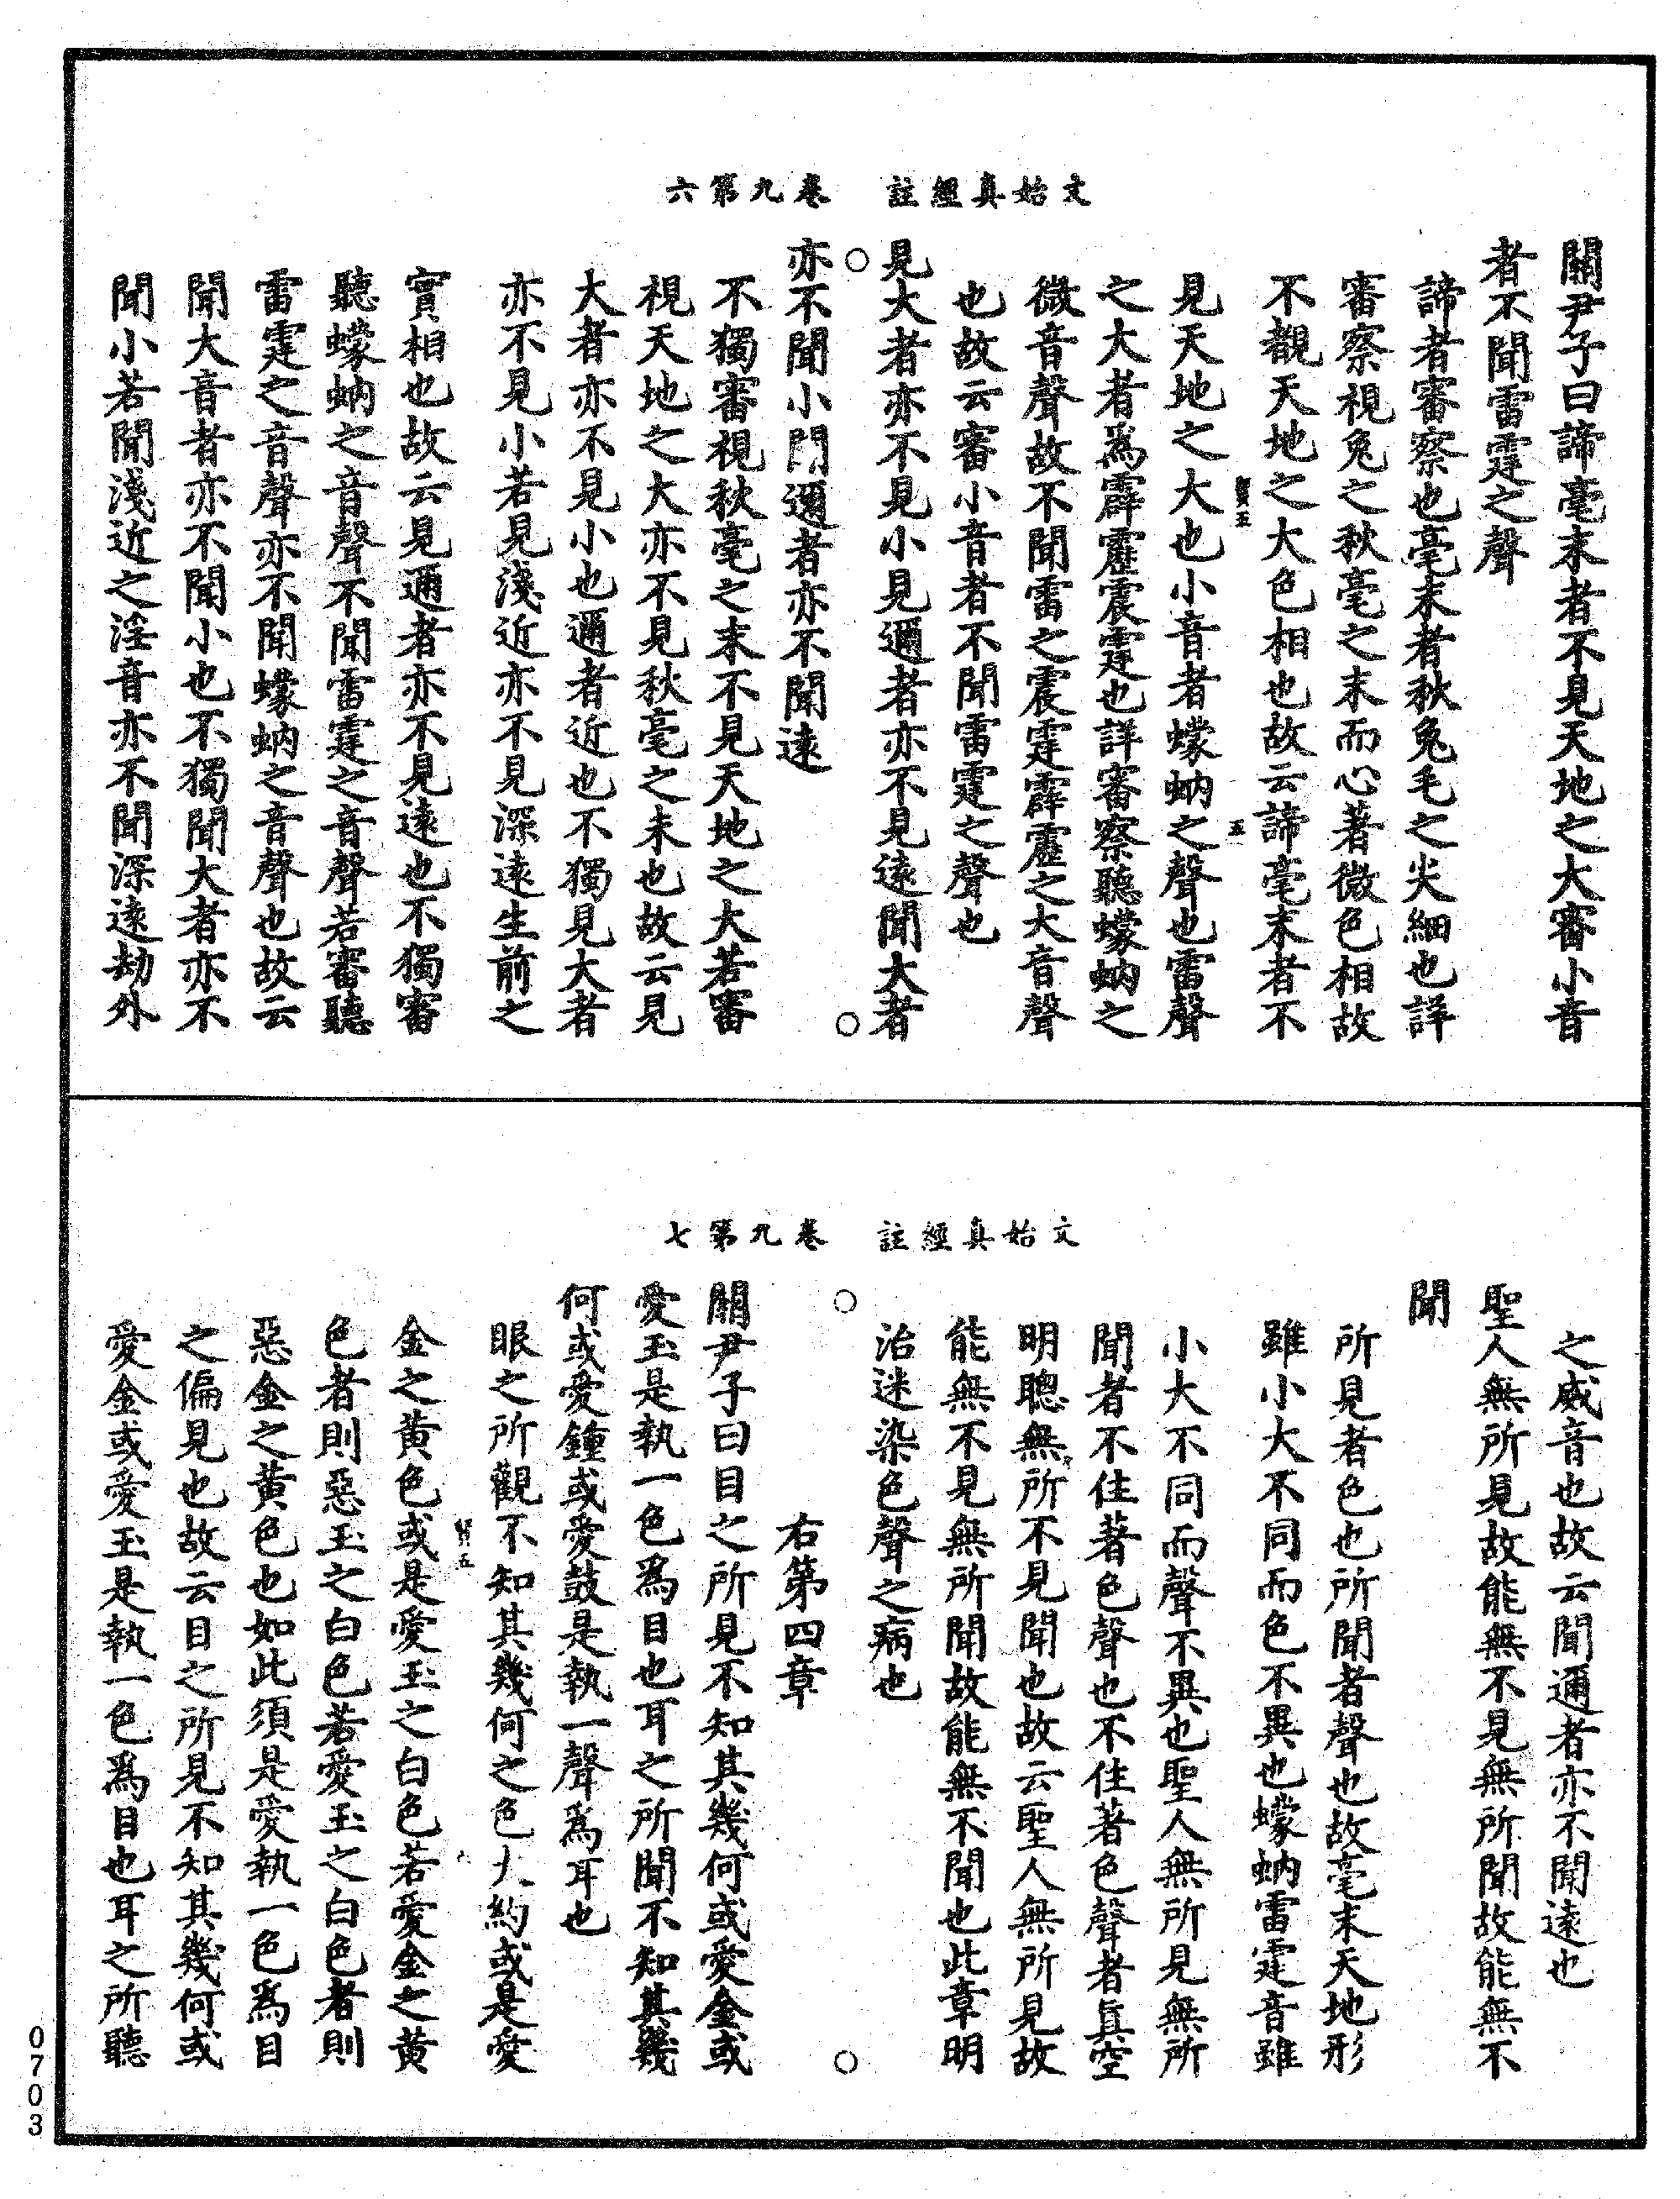 文始真經註　卷九第六
關尹子曰諦毫末者不見天地之大審小音
者不聞雷霆之聲
諦者審察也毫末者秋兔毛之尖細也詳
審察視兔之秋毫之末而心著微色相故
不覩天地之大色相也故云諦毫末者不
見天地之大也小音者蠓蚋之聲也雷聲
之大者為霹靂震霆也詳審察聽蠓蚋之
微音聲故不聞雷之震霆霹靂之大音聲
也故云審小音者不聞雷霆之聲也
見大者亦不見小見邇者亦不見遠聞大者
亦不聞小聞邇者亦不聞遠
不獨審視秋毫之末不見天地之大若審
視天地之大亦不見秋毫之末也故云見
大者亦不見小也邇者近也不獨見大者
亦不見小若見淺近亦不見深遠生前之
實相也故云見邇者亦不見遠也不獨審
聽蠓蚋之音聲不聞雷霆之音聲若審聽
雷霆之音聲亦不聞蠓蚋之音聲也故云
聞大音者亦不聞小也不獨聞大者亦不
聞小若聞淺近之淫音亦不聞深遠劫外
文始真經註　卷九第七
之威音也故云聞邇者亦不聞遠也
聖人無所見故能無不見無所聞故能無不
聞
所見者色也所聞者聲也故毫末天地形
雖小大不同而色不異也蠓蚋雷霆音雖
小大不同而聲不異也聖人無所見無所
聞者不住著色聲也不住著色聲者真空
明聰無所不見聞也故云聖人無所見故
能無不見無所聞故能無不聞也此章明
治迷染色聲之病也
右第四章
關尹子曰目之所見不知其幾何或愛金或
愛玉是執一色為目也耳之所聞不知其幾
何或愛鍾或愛鼓是執一聲為耳也
眼之所觀不知其幾何之色大約或是愛
金之黃色或是愛玉之白色若愛金之黃
色者則惡玉之白色若愛玉之白色者則
惡金之黃色也如此須是愛執一色為目
之偏見也故云目之所見不知其幾何或
愛金或愛玉是執一色為目也耳之所聽
0703